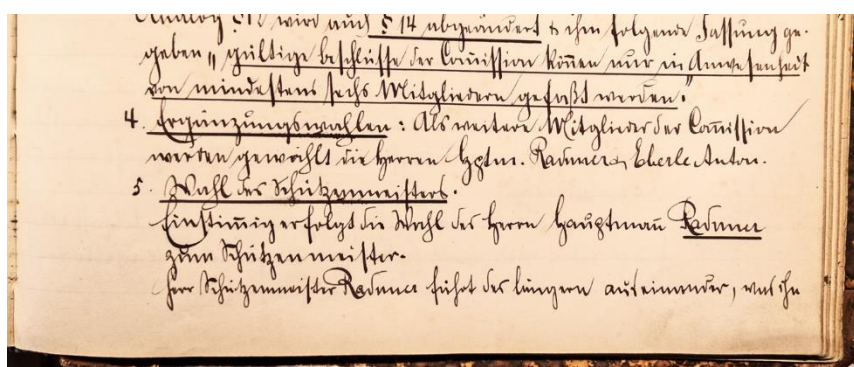 Analog § 12 wird auch § 14 abgeändert & ihm folgende Fassung ge-
geben „gültige Beschlüsse der Com̅ission kön̅en nur in Anwesenheit
von mindestens sechs Mitgliedern gefaßt werden."
4. Ergänzungswahlen: Als weitere Mitglieder der Com̅ission
werden gewählt die Herren Hptm. Raduner, Eberle Anton.
5. Wahl des Schützenmeisters.
Einstim̅ig erfolgt die Wahl des Herrn Hauptman̅ Raduner
zum Schützenmeister.
Herr Schützenmeister Raduner führt des längern auseinander, was ihn